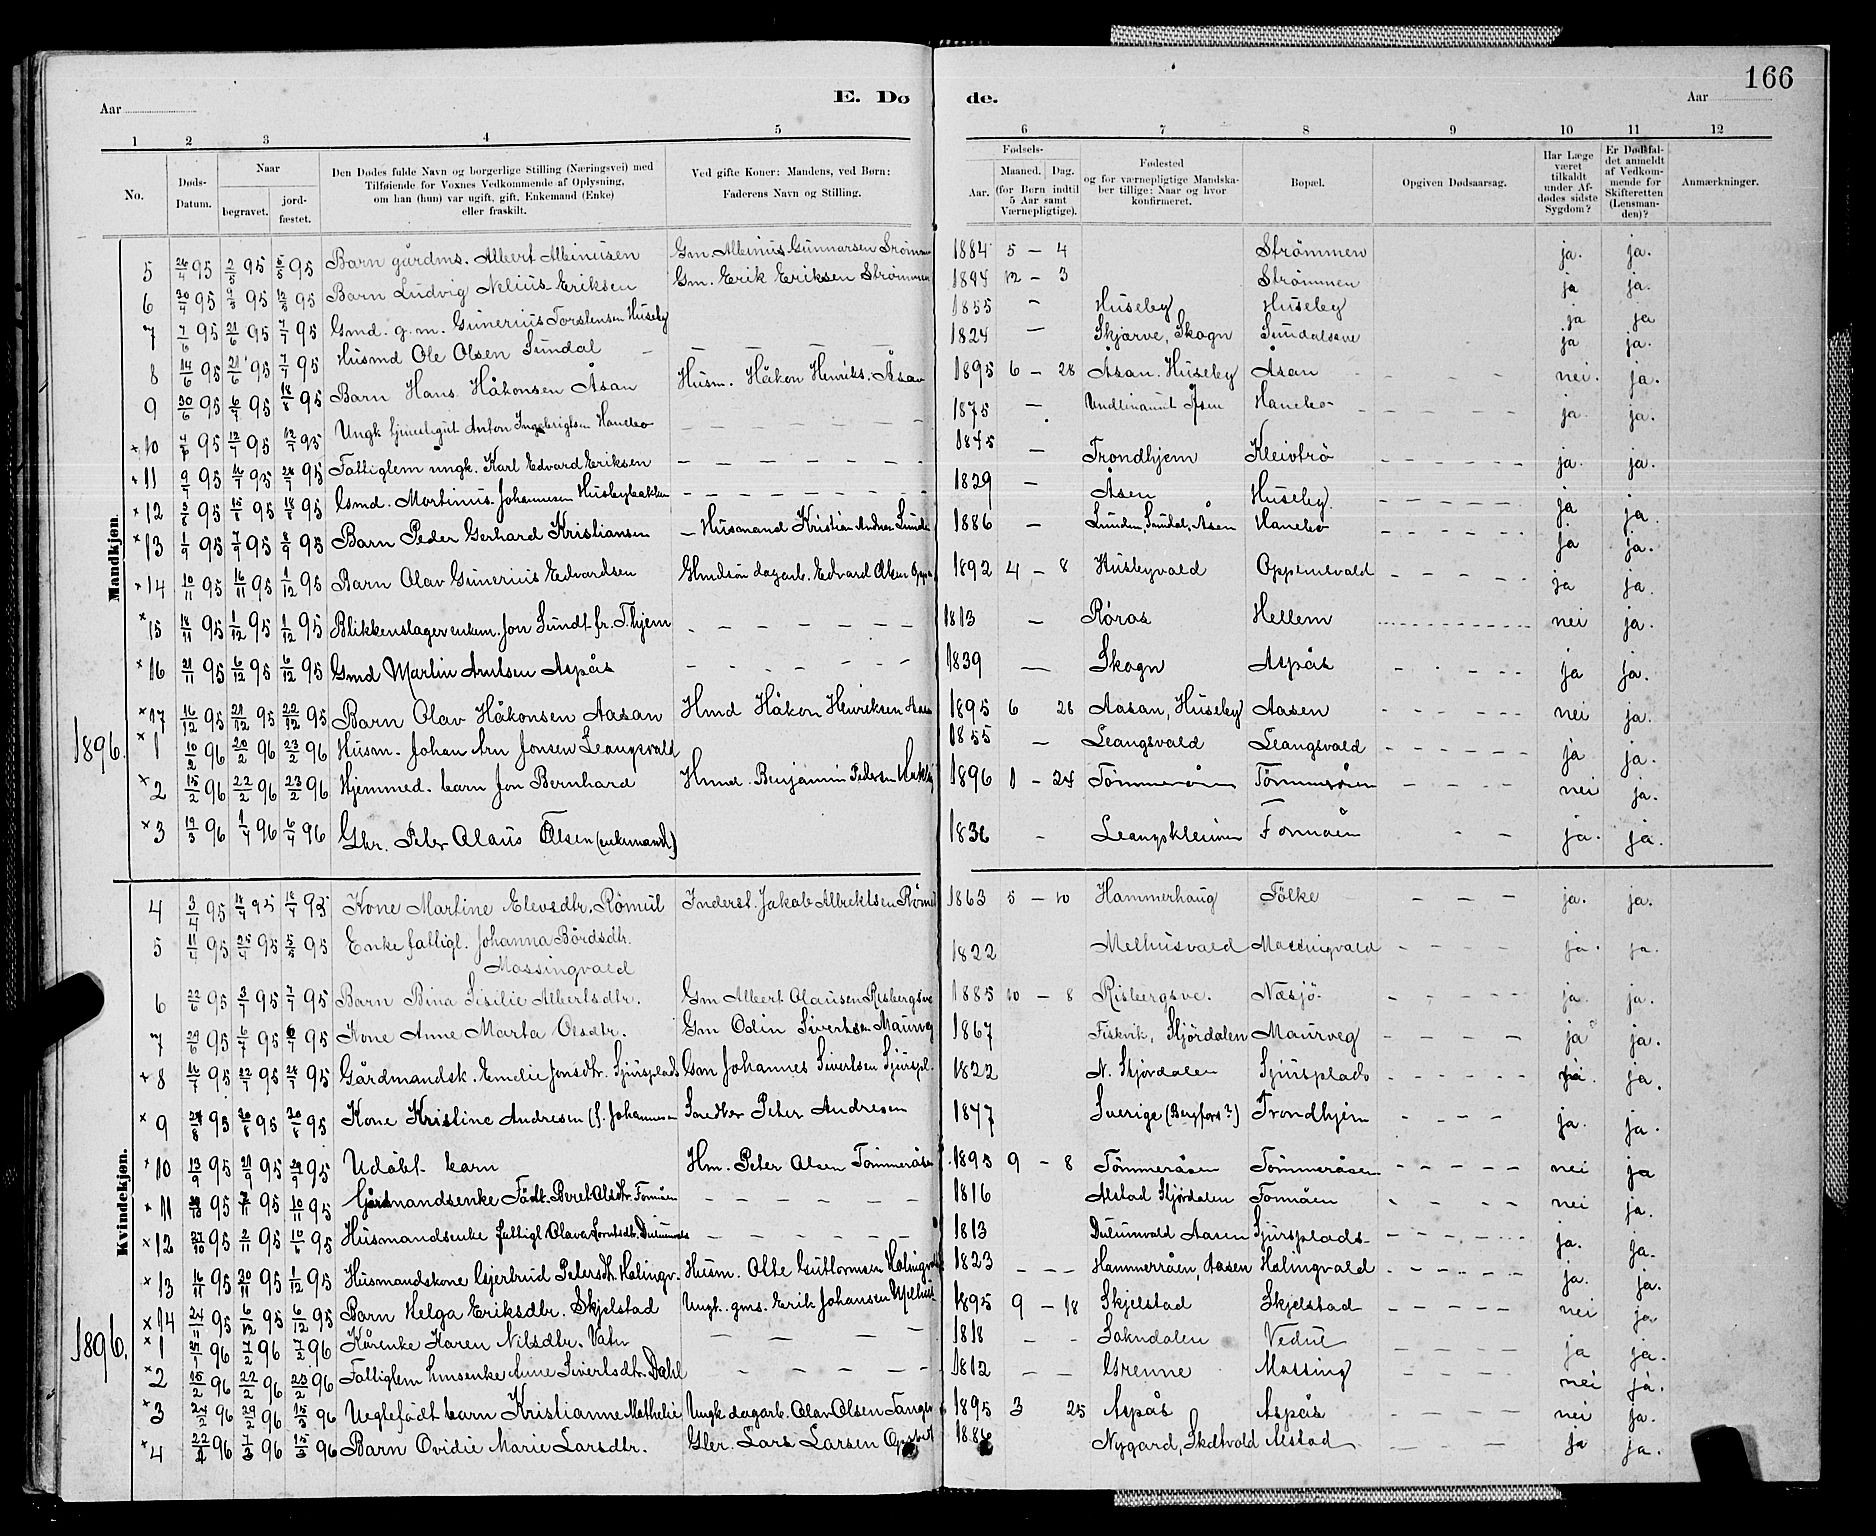 166
Aar
E. Dø
de.
Aar
1 2 3 4 5 6 7 8 9 10 11 12
No.
Døds-Datum.
Naar
begravet.
jordfæstet.
Den Dødes fulde Navn og borgerlige Stilling (Næringsvei) med
Tilføiende for Voxnes Vedkommende af Oplysning,
om han (hun) var ugift, gift, Enkemand (Enke)
eller fraskilt.
Ved gifte Koner: Mandens, ved Børn:
Faderens Navn og Stilling.
Fødsels-
Aar.
Maaned. Dag.
(for Børn indtil
5 Aar samt
Værnepligtige).
Fødested
og for værnepligtige Mandska-
ber tillige: Naar og hvor
konfirmeret.
Bopæl.
Opgiven Dødsaarsag.
Har Læge
været
tilkaldt
under Af-
dødes sidste
Sygdom?
Er Dødsfal-
det anmeldt
af Vedkom-
mende for
Skifteretten
(Lensman-
den)?
Anmærkninger.
Mandkjøn
5 26/4 95 2/5 95 5/5 95 Barn gårdms. Albert Albinusen Gm. Albinus Gunnarsen 1884 5 - 4 Strömmen ja. ja.
6 30/4 95 95 95 Barn Ludvig Nelius Eriksen Gm. Erik Eriksen Strömmen 1894 12 - 3 Strömmen ja ja.
7 7/6 95 21/6 95 7/7 95 Gmd. g. m. Gunerius Torstensen Huseby 1855 - Huseby Huseby ja ja
8 14/6 95 21/6 95 7/7 95 Husmd Ole Olsen Sundal 1824 - Skjærve, Skogn ja ja.
9 30/6 95 6/7 95 18/8 95 Barn Hans Håkonsen Åsan Husm. Håkon Henriks. Åsan 1895 6 - 28 Åsan. Huseby Åsan nei. ja.
x10 95 12/7 95 95 Ungk Anton Ingebrigtsen Hanebo 1875 - Åsen Hanebo ja. ja.
x11 9/7 95 95 95 Fattiglem ungk. Karl Edvard Eriksen 1845 - Trondhjem Kleivtrö ja. ja.
x12 95 95 18/8 95 Gmd. Martinus Johannesen Husebybakken 1829 - Åsen Huseby ja ja.
x13 1/9 95 7/9 95 8/9 95 Barn Peder Gerhard Kristiansen Husmand Kristian 1886 - Lunden, Sundal, Åsen Hanebo ja ja.
x14 10/11 95 16/11 95 1/12 95 Barn Olav Gunerius Edvardsen dagarb. Edvard Olsen 1892 4 - 8 Husbyvald ja ja.
x15 18/11 95 1/12 95 1/12 95 Blikkenslager enkem. Jon Sundt fr. T.hjem 1813 - Röros Hellem nei ja.
x16 21/11 95 6/12 95 6/12 95 Gmd Martin Arntsen Aspås 1839 - Skogn Aspås ja ja.
x17 16/12 95 21/12 95 22/12 95 Barn Olav Håkonsen Aasan Hmd Håkon Henriksen 1895 6 28 Aasan, Huseby Aasen nei ja.
1896. x1 10/2 96 20/2 96 23/2 96 Husm. Johan Arn Jonsen Leangsvald 1855 - Leangsvald Leangsvald ja ja.
x2 15/2 96 22/2 96 23/2 96 Hjemmed. barn Jon Bernhard Hmd. Benjamin Pedersen 1896 1 - 24 Tömmeråsen nei ja.
x3 12/3 96 1/4 96 6/4 96 Gbr. Peter Olaus Olsen (enkemand) 1836 - Leangskleiven Fornåen ja. ja.
Kvindekjøn.
4 3/4 95 95 95 Kone Martine Elevsdtr. Römül Inderst. Jakob Albrektsen 1863 5 - 10 Hammerhaug Fölke ja. ja.
5 11/4 95 25/4 95 5/5 95 Enke fattigl. Johanna Bårdsdtr.
Massingvald 1822 Melhusvald Massingvald ja. ja.
6 95 3/7 95 7/7 95 Barn Bina Sisilie Albertsdtr. Gm Albert Olausen Risbergsve 1885 10 - 8 Risbergsve. Næsjö ja. ja.
7 29/6 95 6/7 95 95 Kone Anne Marta Olsdtr. Gm Odin Sivertsen Maurveg 1867 Fiskvik, Stjördalen Maurveg ja ja.
x8 16/7 95 22/7 95 28/7 95 Gårdmandsk. Emelie Jonsdtr. Sjursplads Gm Johannes Sivertsen Sjurspl. 1822 N. Stjördalen Sjursplads ja.
x9 95 30/8 95 30/8 95 Kone Kristine Andresen (f. Johannesen Snedker Peter Andresen 1847 Sverige (Bergfors?) Trondhjem ja. ja.
x10 13/9 95 21/9 95 29/9 95 Udöbt barn Hm. Peter Olsen Tömmeråsen 1895 9 - 8 Tömmeråsen Tömmeråsen nei ja
x11 95 7/11 95 10/11 95 Gårdmandsenke Födt. Beret Olsdtr. Fornåen 1816 Alstad Stjördalen Fornåen nei ja.
x12 27/10 95 2/11 95 95 Husmandsenke fattigl 1813 Aasen Sjursplads ja. ja.
x13 16/11 95 20/11 95 1/12 95 Husmandskone Gjertrud Petersdtr. Holingv. Husm. Olle Guttormsen Holingvald 1823 - - - Hammeråen, Aasen Holingvald ja. ja.
x14 24/11 95 6/12 95 6/12 95 Barn Helga Eriksdtr. Skjelstad Ungk. gms. Erik Johansen 1895 9 - 18 Skjelstad Skjelstad nei ja
1896. x1 96 7/2 96 7/2 96 Kårenke Karen Nilsdtr. Vatn 1818 - - Vedul ja ja.
x2 15/2 96 22/2 96 23/2 96 Fattiglem hmsenke Anne Sivertsdtr. Dahl 1812 - - Grenne Massing nei ja.
x3 24/2 96 29/2 96 15/3 96 Uegtefödt barn Kristianne Mathelie Ungk dagarb. Olav Olsen 1895 3 25 Aspås Aspås nei ja.
x4 96 7/3 96 15/3 96 Barn Ovidie Marie Larsdtr. Gbr. Lars Larsen 1886 Nygard, Skatvold Alstad ja ja.